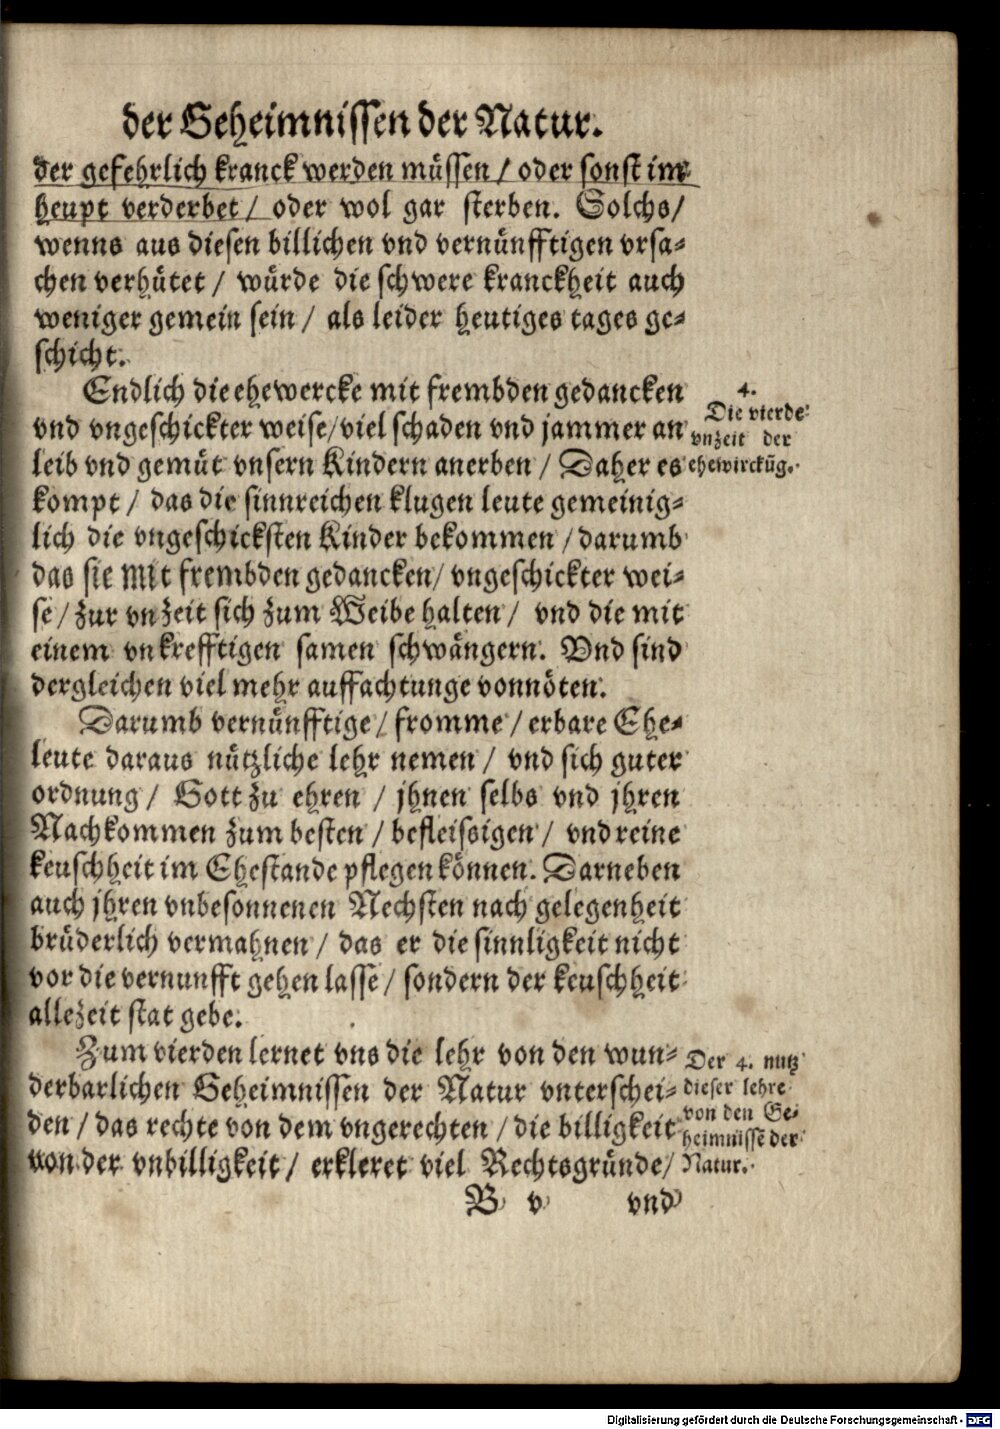 der Geheimnissen der Natur.
der gefehrlich kranck werden müssen / oder sonst im
heupt verderbet / oder wol gar sterben. Solchs /
wenns aus diesen billichen vnd vernünfftigen vrsa-
chen verhütet / würde die schwere kranckheit auch
weniger gemein sein / als leider heutiges tages ge-
schicht.
Endlich die ehewercke mit frembden gedancken
vnd vngeschickter weise / viel schaden vnd jammer an
leib vnd gemüt vnsern Kindern anerben / Daher es
kompt / das die sinnreichen klugen leute gemeinig-
lich die vngeschicksten Kinder bekommen / darumb
das sie mit frembden gedancken / vngeschickter wei-
se / zur vnzeit sich zum Weibe halten / vnd die mit
einem vnkrefftigen samen schwängern. Vnd sind
dergleichen viel mehr auffachtunge vonnöten.
4.
Die vierde
vnzeit der
ehewirckūg.
Darumb vernünfftige / fromme / erbare Ehe-
leute daraus nützliche lehr nemen / vnd sich guter
ordnung / Gott zu ehren / jhnen selbs vnd jhren
Nachkommen zum besten / befleissigen / vnd reine
keuschheit im Ehestande pflegen können. Darneben
auch jhren vnbesonnenen Nechsten nach gelegenheit
brüderlich vermahnen / das er die sinnligkeit nicht
vor die vernunfft gehen lasse / sondern der keuschheit
allezeit stat gebe.
Zum vierden lernet vns die lehr von den wun-
derbarlichen Geheimnissen der Natur vnterschei-
den / das rechte von dem vngerechten / die billigkeit
von der vnbilligkeit / erkleret viel Rechtsgründe /
Der 4. nutz
dieser lehre
von den Ge-
heimnissē der
Natur.
B v vnd
Digitalisierung gefördert durch die Deutsche Forschungsgemeinschaft - DFG